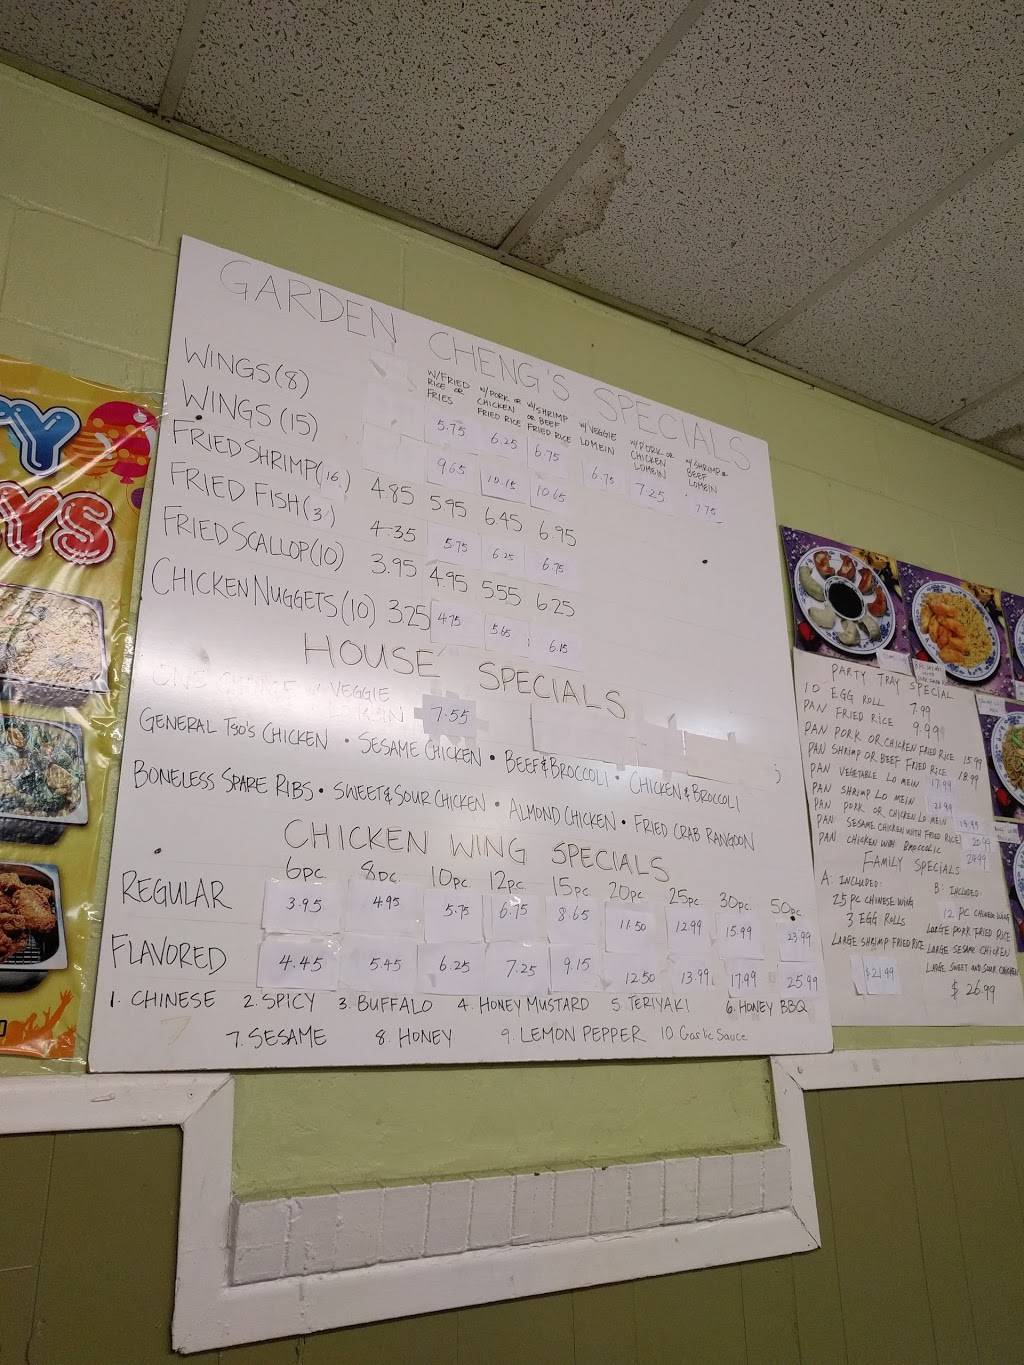 GARDEN CHENG'S SPECIALS
W/FRIED RICE OR FRIES
W/PORK OR CHICKEN FRIED RICE
W/SHRIMP OR BEEF FRIED RICE
W/VEGGIE LOMEIN
W/PORK OR CHICKEN LOMEIN
W/SHRIMP OR BEEF LOMEIN
WINGS (8) 5.75 6.25 6.75 6.75 7.25 7.75
WINGS (15) 9.65 10.15 10.65
FRIED SHRIMP (16) 4.85 5.95 6.45 6.95
FRIED FISH (3) 4.35 5.75 6.25 6.75
FRIED SCALLOP (10) 3.95 4.95 5.55 6.25
CHICKEN NUGGETS (10) 3.25 4.75 5.65 6.15
HOUSE SPECIALS
VEGGIE
7.55
GENERAL TSO'S CHICKEN • SESAME CHICKEN • BEEF & BROCCOLI • CHICKEN & BROCCOLI
BONELESS SPARE RIBS • SWEET & SOUR CHICKEN • ALMOND CHICKEN • FRIED CRAB RANGOON
CHICKEN WING SPECIALS
6pc. 8pc. 10pc. 12pc. 15pc. 20pc. 25pc. 30pc. 50pc.
REGULAR 3.95 4.95 5.75 6.75 8.65 11.50 12.99 15.99 23.99
FLAVORED 4.45 5.45 6.25 7.25 9.15 12.50 13.99 17.99 25.99
1. CHINESE 2. SPICY 3. BUFFALO 4. HONEY MUSTARD 5. TERIYAKI 6. HONEY BBQ
7. SESAME 8. HONEY 9. LEMON PEPPER 10 Garlic Sauce
PARTY TRAY SPECIAL
10 EGG ROLL 7.99
PAN FRIED RICE 9.99
PAN PORK OR CHICKEN FRIED RICE 15.99
PAN SHRIMP OR BEEF FRIED RICE 18.99
PAN VEGETABLE LO MEIN 17.99
PAN SHRIMP LO MEIN
PAN PORK OR CHICKEN LO MEIN
PAN SESAME CHICKEN WITH FRIED RICE
PAN CHICKEN WITH BROCCOLIC
FAMILY SPECIALS
A: INCLUDED:
25 PC CHINESE WING
3 EGG ROLLS
LARGE SHRIMP FRIED RICE
$21.99
B: INCLUDED:
12 PC CHINESE WING
LARGE PORK FRIED RICE
LARGE SESAME CHICKEN
LARGE SWEET AND SOUR CHICKEN
$26.99